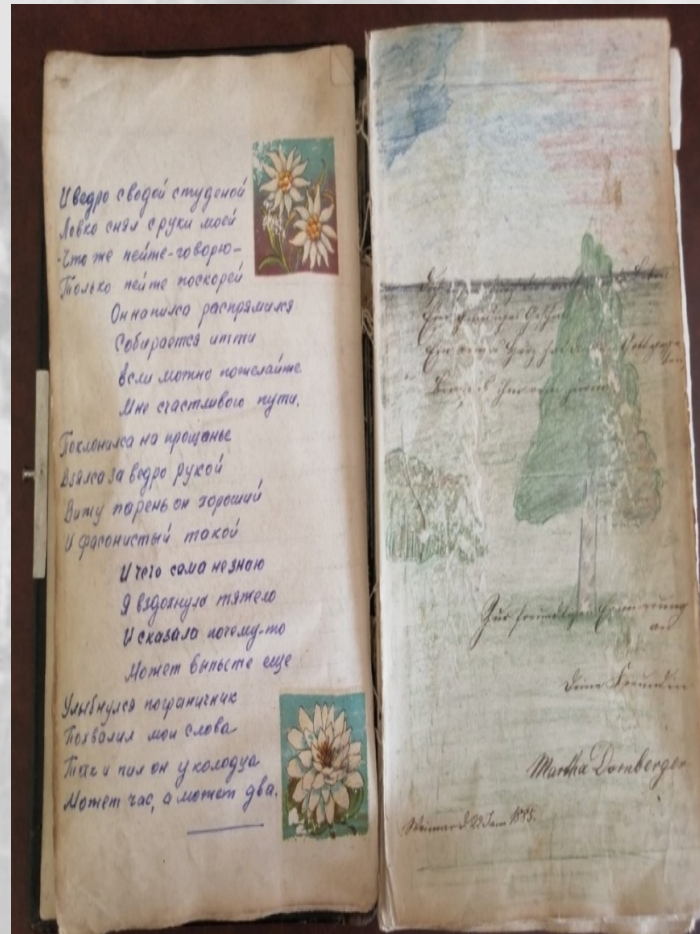 И ведро с водой студеной
Ловко снял с руки моей
-Что же пейте-говорю-
Только пейте поскорей
Он напился распрямился
Собирается итти
Если можно пожелайте
Мне счастливого пути.
Поклонился на прощанье
Взялся за ведро рукой
Вижу парень он хороший
И фасонистый такой
И чего сама не знаю
Я вздохнула тяжело
И сказала почему-то
Может выпьете еще
Улыбнулся пограничник
Похвалил мои слова
Так и пил он у колодца
Может час, а может два.
Zur freundlichen Erinnerung
an
Deine Freundin
Martha Dornberger
Weimar d. 22